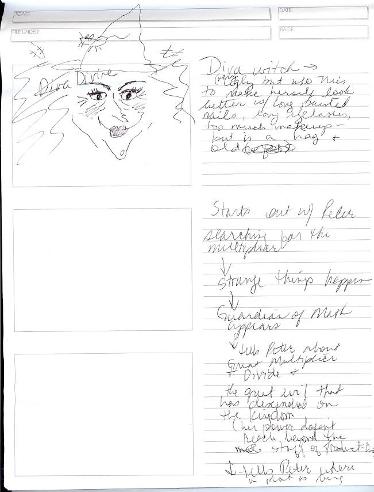 DATE
PAGE
Diva Divine
Diva witch →
ugly but
to make herself look
better w/ long painted
nails, long eyelashes,
too much makeup
but is a hag +
old
Starts out w/ Peter
searching for the
multiplier
Strange things happen
Guardian of Math
appears
tells Peter about
Great Multiplier
+ Divide +
the great evil that
has descended on
the kingdom
(her power doesn't
reach beyond the
staff of
tells Peter where